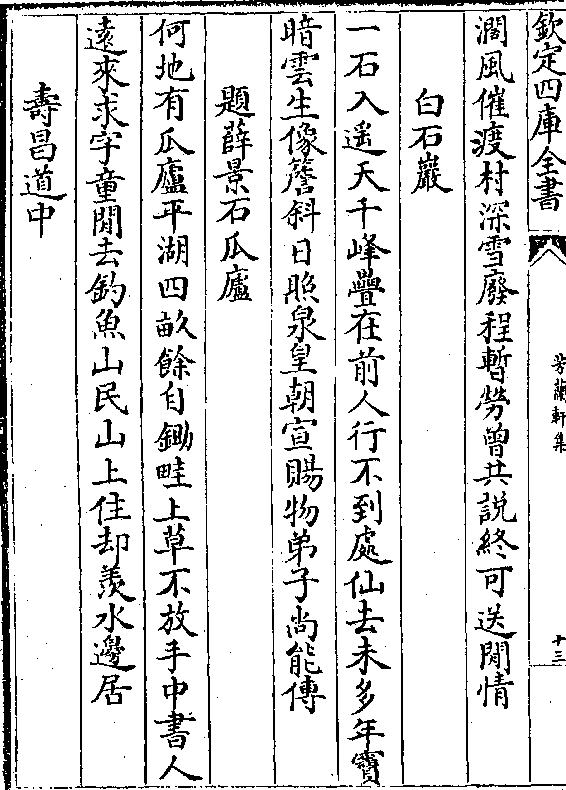 欽定四庫全書
芳蘭軒集
十三
濶風催渡村深雪廢程暫勞曾共說終可送閒情
白石巖
一石入遥天千峰疊在前人行不到處仙去未多年寶
暗雲生像簷斜日照泉皇朝宣賜物弟子尚能傳
題薛景石瓜廬
何地有瓜廬平湖四畝餘自鋤畦上草不放手中書人
遠來求字童閒去釣魚山民山上住却羨水邊居
壽昌道中